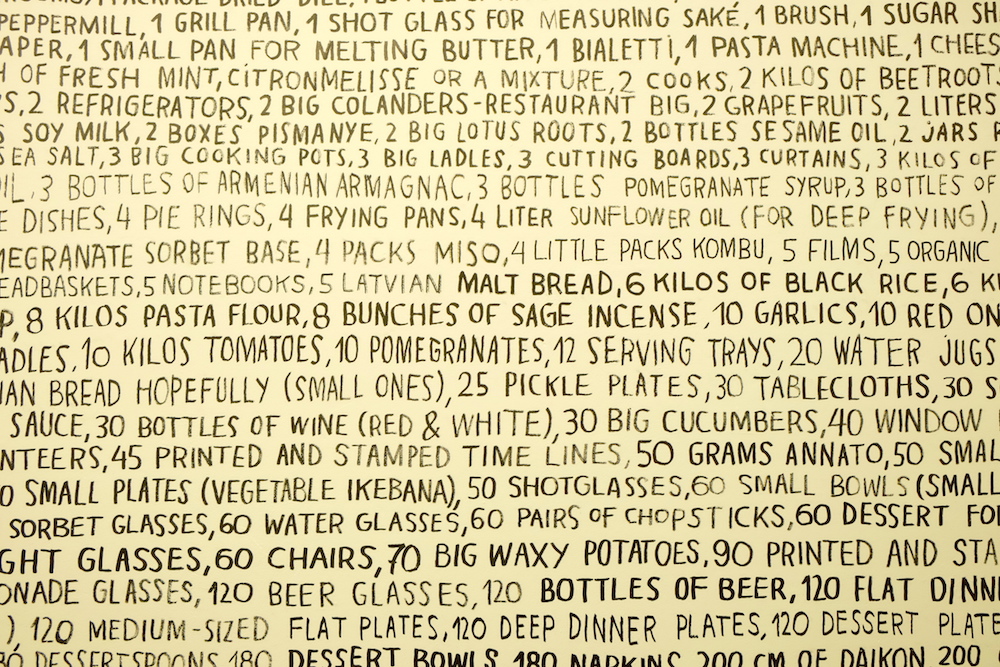 1 PACKAGE DRIED DILL, 1 BOTTLE
PEPPERMILL, 1 GRILL PAN, 1 SHOT GLASS FOR MEASURING SAKÉ, 1 BRUSH, 1 SUGAR SH
APER, 1 SMALL PAN FOR MELTING BUTTER, 1 BIALETTI, 1 PASTA MACHINE, 1 CHEES
H OF FRESH MINT, CITRONMELISSE OR A MIXTURE, 2 COOKS, 2 KILOS OF BEETROOT
S, 2 REFRIGERATORS, 2 BIG COLANDERS-RESTAURANT BIG, 2 GRAPEFRUITS, 2 LITERS
S SOY MILK, 2 BOXES PISMANYE, 2 BIG LOTUS ROOTS, 2 BOTTLES SESAME OIL, 2 JARS
SEA SALT, 3 BIG COOKING POTS, 3 BIG LADLES, 3 CUTTING BOARDS, 3 CURTAINS, 3 KILOS OF
OIL, 3 BOTTLES OF ARMENIAN ARMAGNAC, 3 BOTTLES POMEGRANATE SYRUP, 3 BOTTLES OF
E DISHES, 4 PIE RINGS, 4 FRYING PANS, 4 LITER SUNFLOWER OIL (FOR DEEP FRYING),
MEGRANATE SORBET BASE, 4 PACKS MISO, 4 LITTLE PACKS KOMBU, 5 FILMS, 5 ORGANIC
EADBASKETS, 5 NOTEBOOKS, 5 LATVIAN MALT BREAD, 6 KILOS OF BLACK RICE, 6 KI
P, 8 KILOS PASTA FLOUR, 8 BUNCHES OF SAGE INCENSE, 10 GARLICS, 10 RED ON
ADLES, 10 KILOS TOMATOES, 10 POMEGRANATES, 12 SERVING TRAYS, 20 WATER JUGS
IAN BREAD HOPEFULLY (SMALL ONES), 25 PICKLE PLATES, 30 TABLECLOTHS, 30 S
SAUCE, 30 BOTTLES OF WINE (RED & WHITE), 30 BIG CUCUMBERS, 40 WINDOW
NTEERS, 45 PRINTED AND STAMPED TIME LINES, 50 GRAMS ANNATO, 50 SMAL
0 SMALL PLATES (VEGETABLE IKEBANA), 50 SHOTGLASSES, 60 SMALL BOWLS (SMALL
SORBET GLASSES, 60 WATER GLASSES, 60 PAIRS OF CHOPSTICKS, 60 DESSERT FO
GHT GLASSES, 60 CHAIRS, 70 BIG WAXY POTATOES, 90 PRINTED AND STA
ONADE GLASSES, 120 BEER GLASSES, 120 BOTTLES OF BEER, 120 FLAT DINN
), 120 MEDIUM-SIZED FLAT PLATES, 120 DEEP DINNER PLATES, 120 DESSERT PLATE
DESSERTSPOONS, 180 DESSERT BOWLS, 180 NAPKINS, 200 CM OF DAIKON, 200